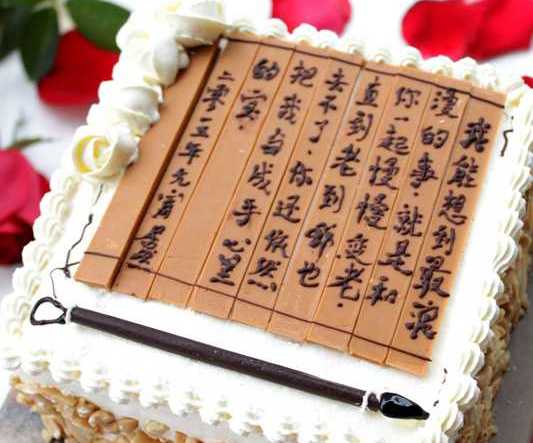 我能想到最浪
漫的事·就是和
你一起慢慢变老·
直到老到哪也
去不了·你还依然
把我当成手心里
的宝·
二零一五年元宵